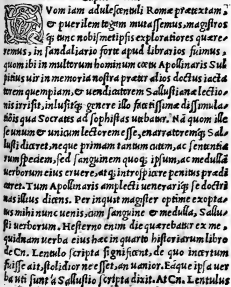 Cum iam adulescentuli Romæ prætextam
& puerilem togam mutassemus, magistros
q́; tunc nobismetipsis exploratores quære
remus, in sandaliario forte apud librarios fuimus,
quom ibi in multorum hominum cœtu Apollinaris Sul
pitius uir in memoria nostra præter alios doctus iacta
torem quempiam, & uenditatorem Sallustianæ lectio
nis irrisit, inlusitq́; genere illo facetissimæ dissimula
tiõis qua Socrates ad sophistas utebatur. Nã quom ille
se unum & unicum lectorem esse, enarratoremq́; Sal-
lusti diceret, neque primam tantum cutem, ac sententia
rum speciem, sed sanguinem quoq́; ipsum, ac medullã
uerborum eius eruere, atq́; introspicere penitus prædi
caret. Tum Apollinaris amplecti uenerariq́; se doctri
nas illius dicens. Per inquit magister optime exopta-
tus mihi nunc uenis, cum sanguine & medulla, Sallu-
sti uerborum. Hesterno enim die quærebatur ex me,
quidnam uerba eius hæc in quarto historiarum libro
de Cn. Lentulo scripta significent, de quo incertum
fuisse ait, stolidior ne esset, an uanior. Eaque ipsa uer
ba uti sunt a Sallustio scripta dixit. At Cn. Lentulus